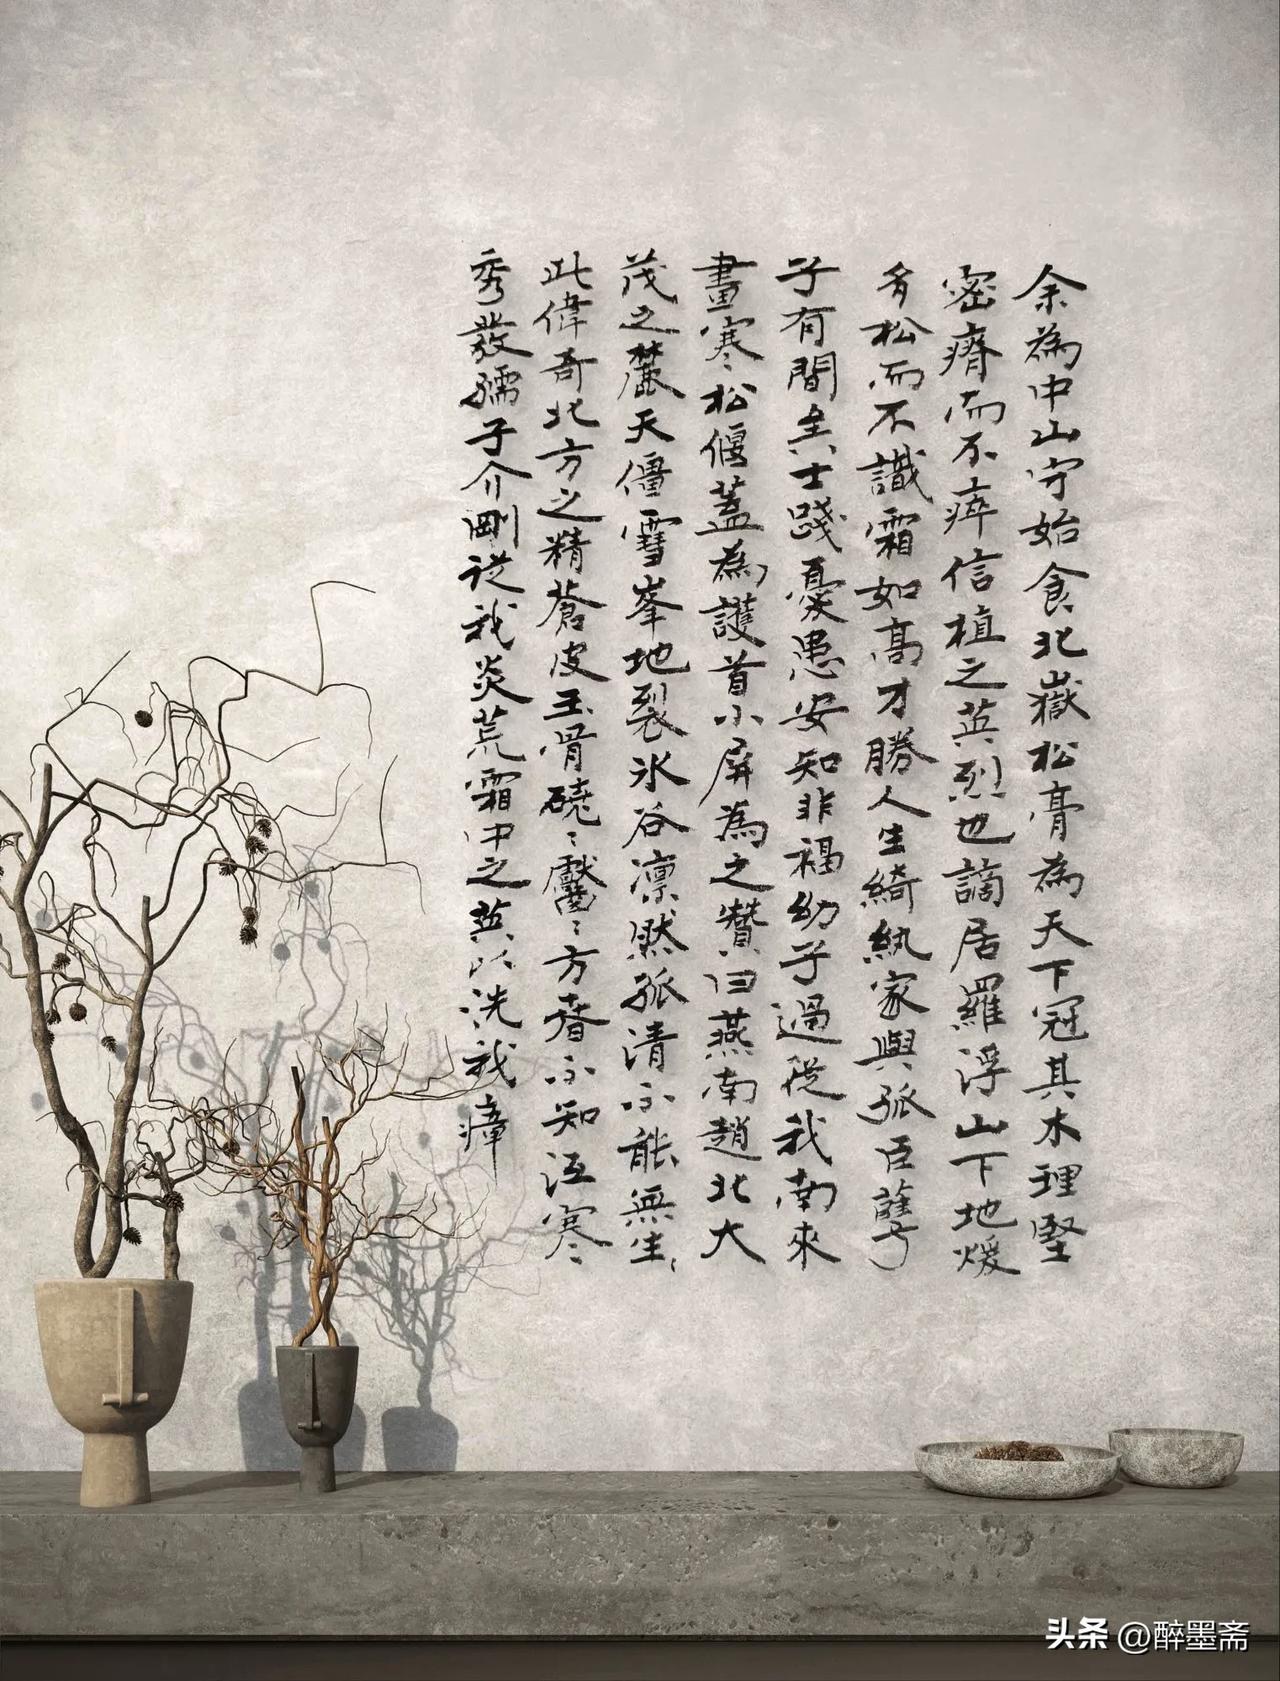 余為中山守始食北嶽松膏為天下冠其木理堅
密瘠而不瘁信植之英烈也謫居羅浮山下地煖
多松而不識霜如高才勝人生綺紈家與孤臣孽
子有間矣士踐憂患安知非福幼子過從我南來
畫寒松偃蓋為護首小屏為之贊曰燕南趙北大
茂之麓天僵雪峯地裂冰谷凛然孤清不能無生〻
此偉奇北方之精蒼皮玉骨磽〻齾〻方春不知沍寒
秀發孺子介剛從我炎荒霜中之英以洗我瘴
头条 @醉墨斋